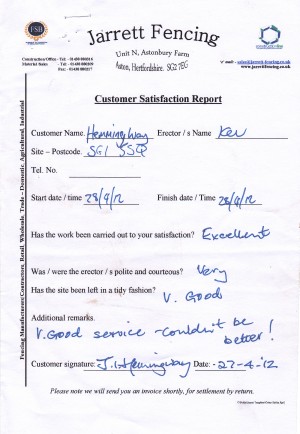 FSB
Jarrett Fencing
Unit N, Astonbury Farm
Aston, Hertfordshire. SG2 7EG
Construction/Office - Tel -
Material Sales - Tel -
Fax -
www.jarrettfencing.co.uk
Customer Satisfaction Report
Customer Name. Hemmingway Erector / s Name Kev
Site – Postcode. SG1 5SQ
Tel. No.
Start date / time 28/9/12 Finish date / Time 28/9/12
Has the work been carried out to your satisfaction? Excellent
Was / were the erector / s polite and courteous? Very
Has the site been left in a tidy fashion? V. Good
Additional remarks.
V. Good service - couldn't be
better!
Customer signature: J. Hemingway Date: - 27-4-'12
Please note we will send you an invoice shortly, for settlement by return.
Fencing Manufacturers/Contractors, Retail, Wholesale, Trade – Domestic, Agricultural, Industrial